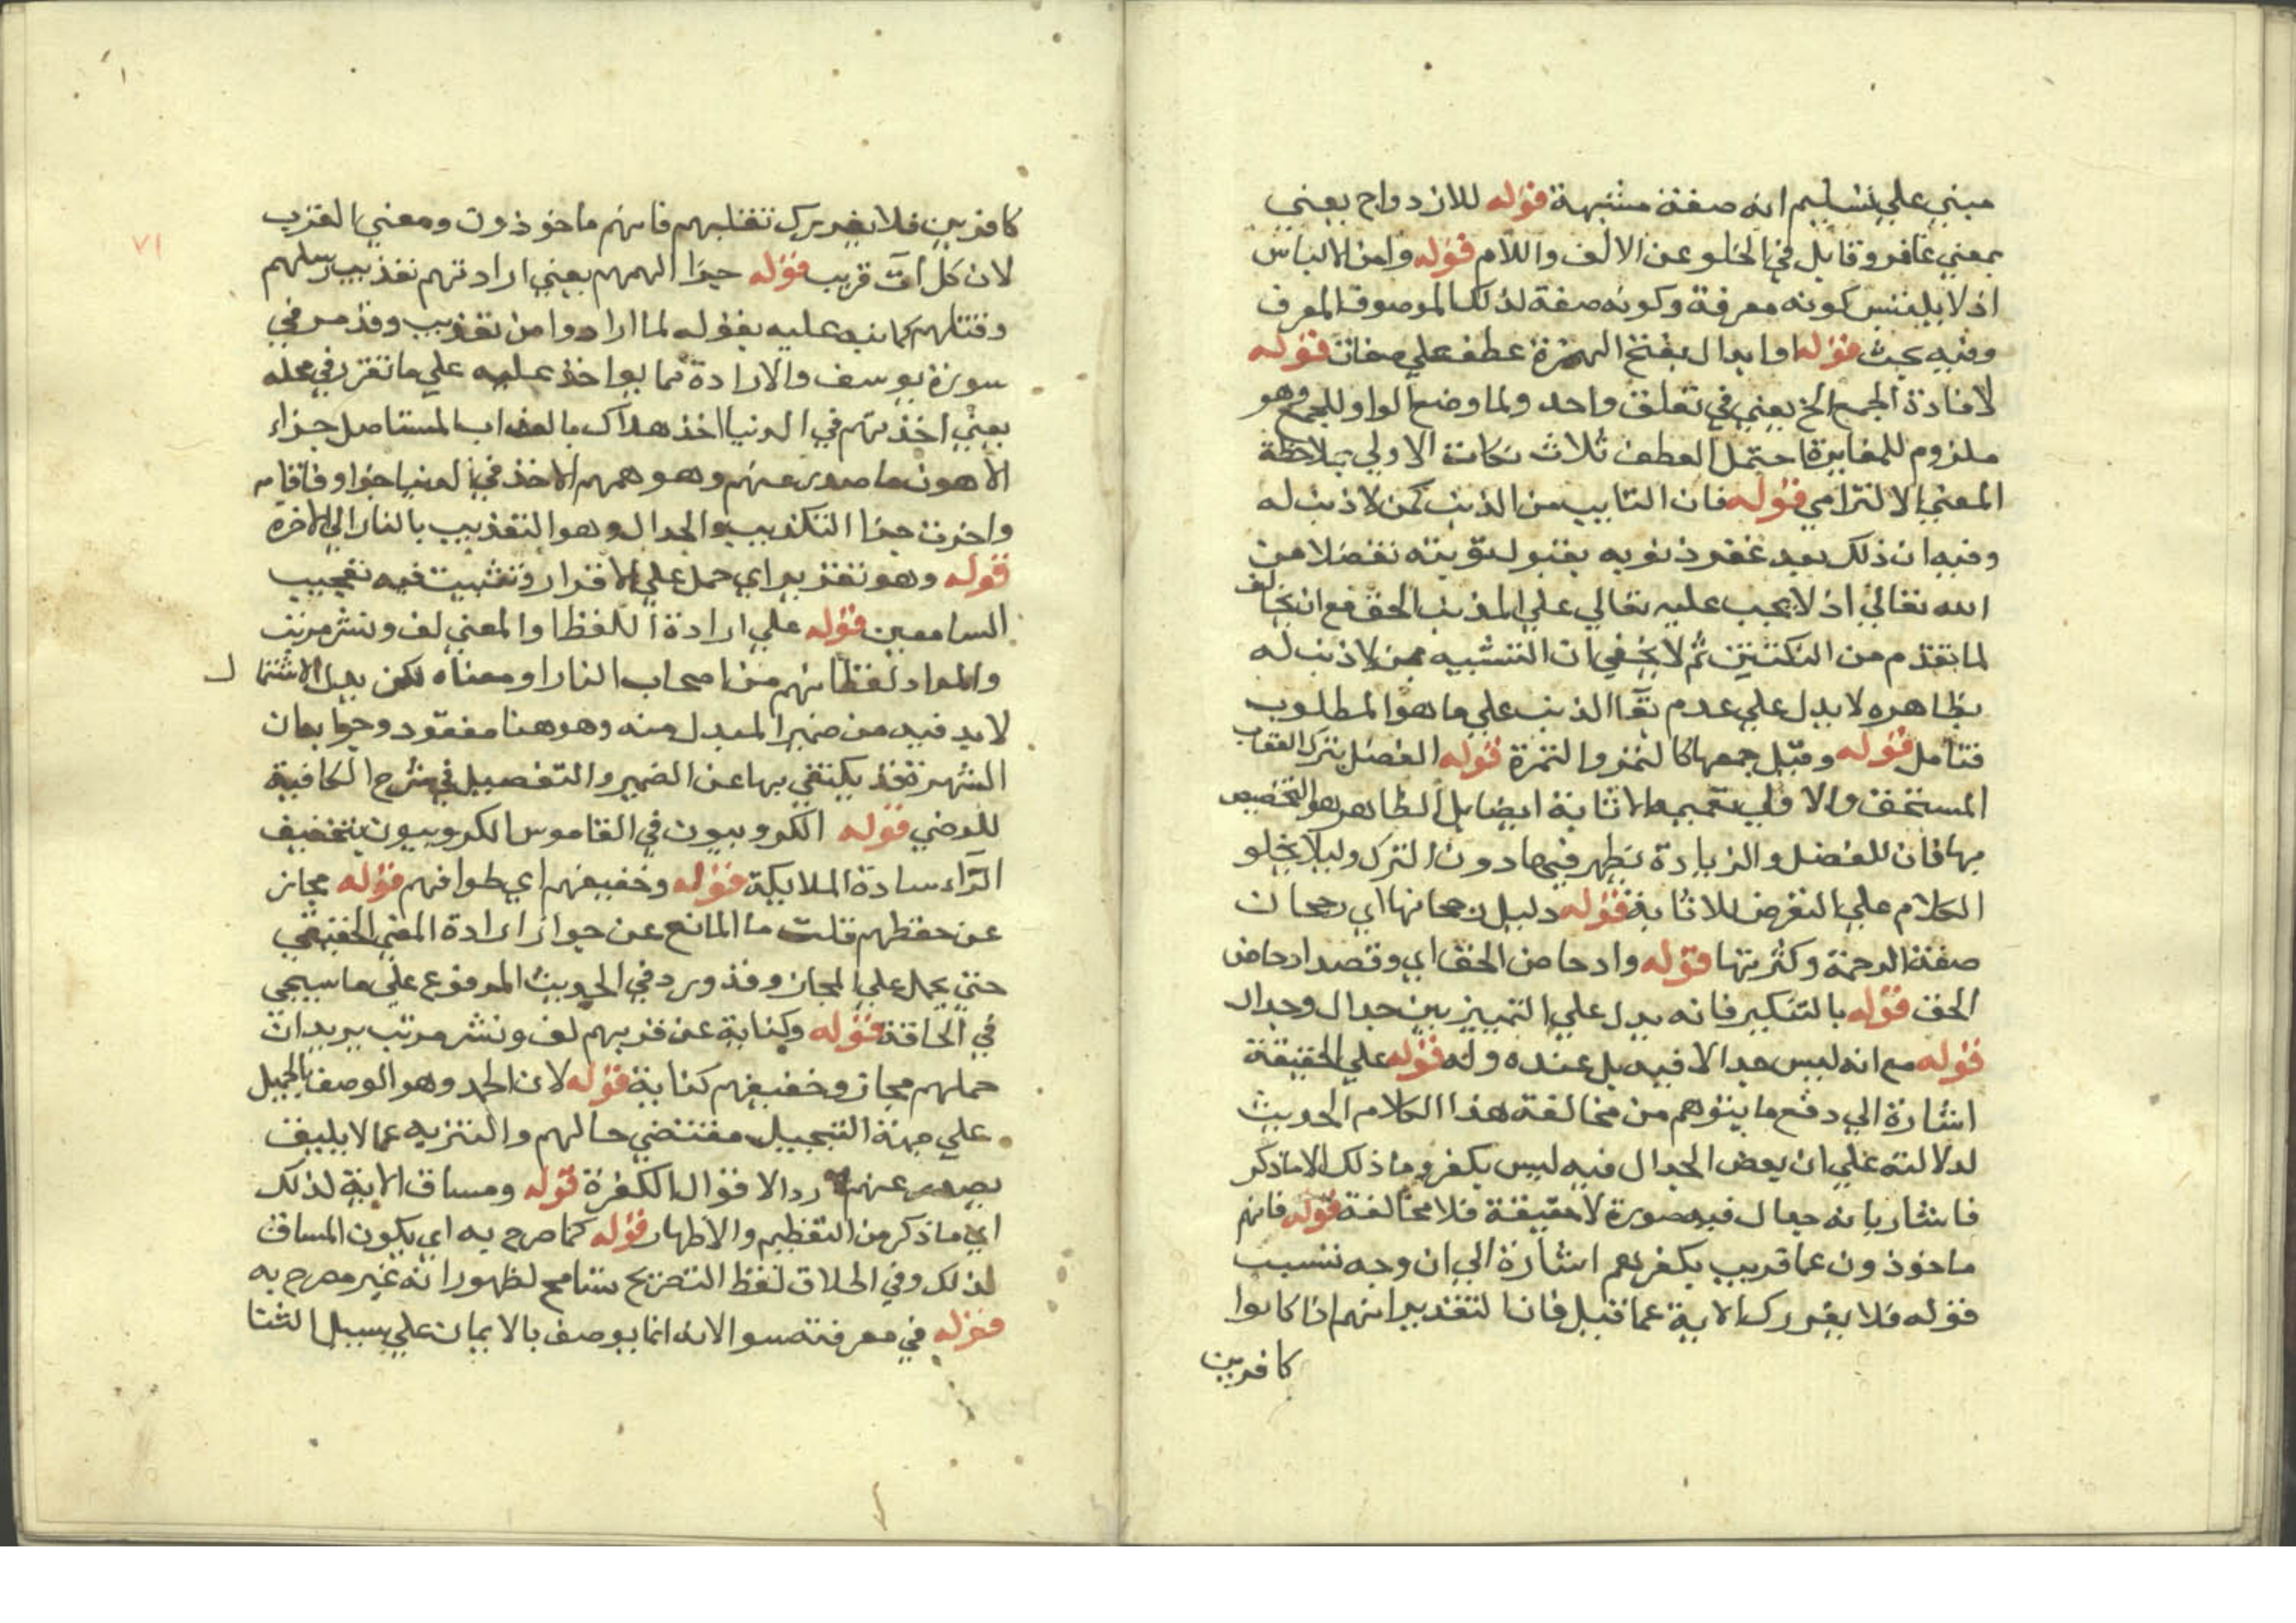 مبني علي تسليم انه صفة مشبهة قوله للازدواج يعني
بمعني غافر وقابل في الخلو عن الالف واللام قوله وامن الالباس
اذ لا يلتبس كونه معرفة وكونه صفة لذلك الموصوف المعرف
وفيه بحث قوله او ابدال بفتح الهمزة عطف علي صفات قوله
لافادة الجمع الخ يعني في تعلق واحد ولما وضع الواو للجمع وهو
ملزوم للمغايرة احتمل العطف ثلاث نكات الاولي بملاحظة
المعني الالتزامي قوله فان التايب من الذنب كمن لا ذنب له
وفيه ان ذلك بعد غفر ذنوبه بقبول توبته تفضلا من
الله تعالي اذ لا يجب عليه تعالي علي المذهب الحق مع انه يخالف
لما تقدم من النكتتين ثم لا يخفي ان التشبيه بمن لا ذنب له
بظاهره لا يدل علي عدم بقا الذنب علي ما هو المطلوب
فتامل قوله وقيل جمعها كالتمر والتمرة قوله الفضل بترك العقاب
المستحق والاولي تعميمه الاثابة ايضا بل الظاهر هو التخصيص
بها فان للفضل والزيادة تظهر فيها دون الترك وليلا يخلو
الكلام علي التعرض للاثابة قوله دليل رجحانها اي رجحان
صفة الرحمة وكثرتها قوله وادحاض الحق اي وقصد ادحاض
الحق قوله بالتنكير فانه يدل علي التمييز بين جدال وجدال
قوله مع انه ليس جدالا فيه بل عنده وله قوله علي الحقيقة
اشارة الي دفع ما يتوهم من مخالفة هذا الكلام الحديث
لدلالته علي ان بعض الجدال فيه ليس بكفر وما ذلك الا ما ذكر
فاشار بانه جدال فيه صورة لا حقيقة فلا مخالفة قوله فانهم
ماخوذون عما قريب بكفرهم اشارة الي ان وجه تسبب
قوله فلا يغررك الاية عما قبل فان التقدير انهم اذا كانوا
كافرين
كافرين فلا يغررك تقلبهم فانهم ماخوذون ومعني القرب
لان كل آت قريب قوله جزا الهمهم يعني ارادتهم تعذيب رسلهم
وقتلهم كما نبه عليه بقوله لما ارادوا من تعذيب وقد مر في
سورة يوسف والارادة مما يواخذ عليه علي ما تقرر في محله
يعني اخذتهم في الدنيا اخذ هلاك بالعذاب المستاصل جزاء
الاهون ما صدر عنهم وهو همهم الاخذ في الدنيا جزا وفاقا م
واخرت جزا التكذيب والجدال وهو التعذيب بالنار الي الاخرة
قوله وهو تقرير اي حمل علي الاقرار وتثبيت فيه تعجيب
السامعين قوله علي ارادة اللفظ او المعني لف ونشر مرتب
والمراد لفظ انهم من اصحاب النار او معناه لكن بدل الاشتمال
لابد فيه من ضمير المبدل منه وهو هنا مفقود وجوابه ان
الشهرة قد يكتفي بها عن الضمير والتفصيل في شرح الكافية
للرضي قوله الكروبيون في القاموس الكروبيون بتخفيف
الرّاء سادة الملايكة قوله وخفيفهم اي طوافهم قوله مجاز
عن حفظهم قلت ما المانع عن جواز ارادة المعني الحقيقي
حتي يحمل علي المجاز وقد ورد في الحديث المرفوع علي ما سيجي
في الحاقة قوله وكناية عن قربهم لف ونشر مرتب يريد ان
حملهم مجاز وخفيفهم كناية قوله لان الحمد وهو الوصف بالجميل
علي جهة التبجيل مقتضي حالهم والتنزيه عما لا يليق
يصدر عنهم ردا لاقوال الكفرة قوله ومساق الاية لذلك
اي ما ذكر من التعظيم والاظهار قوله كما صرح به اي بكون المساق
لذلك وفي اطلاق لفظ التصريح تسامح لظهور انه غير مصرح به
قوله في معرفته سوا لانه انما يوصف بالايمان علي سبيل الثنا
٧١